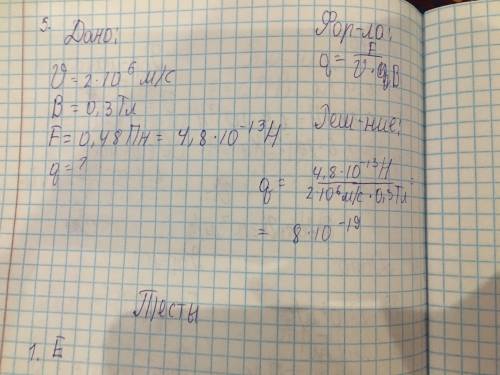 5. Дано:
V = 2·10⁶ м/с
B = 0,3 Тл
F = 0,48 Пн = 4,8·10⁻¹³ Н
q = ?
Фор-ла:
q = F / V·B
Реш-ние:
q = 4,8·10⁻¹³ Н / 2·10⁶ м/с · 0,3 Тл =
= 8·10⁻¹⁹
Тесты
1. E